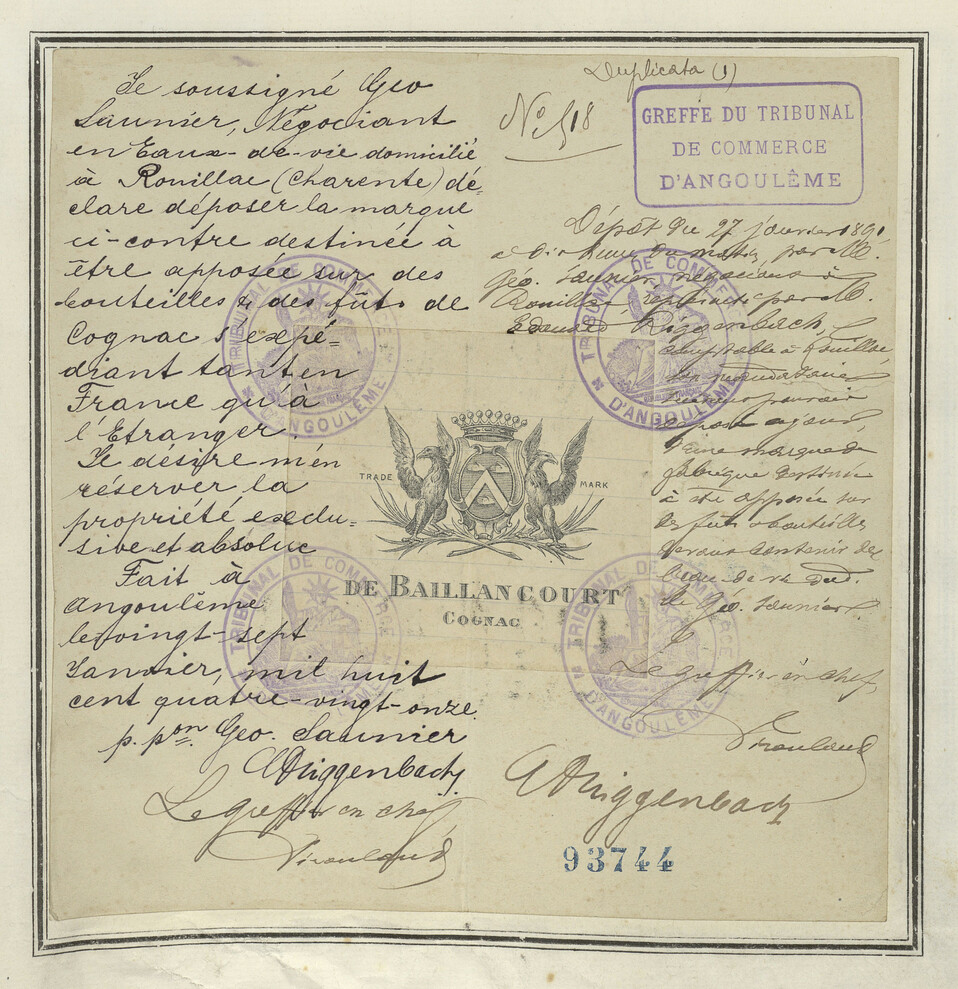 Je soussigné Geo
Saunier, Négociant
en Eaux-de-vie domicilié
à Rouillac (Charente) dé-
clare déposer la marque
ci-contre destinée à
être apposée sur des
bouteilles & des fûts de
Cognac s'expé-
diant tant en
France qu'à
l'Etranger.
Je désire m'en
réserver la
propriété exclu-
sive et absolue
Fait à
Angoulême
le vingt-sept
Janvier, mil huit
cent quatre-vingt-onze.
p. pon. Geo. Saunier
Riggenbach
Le greffier en chef
Duplicata (1)
No 518
GREFFE DU TRIBUNAL
DE COMMERCE
D'ANGOULÊME
Dépôt du 27 janvier 1891
à dix heures du matin, par M.
Géo. Saunier négociant à
Rouillac représenté par M.
Edouard Riggenbach,
comptable à Rouillac
son mandataire
suivant pouvoir
déposé à jour,
d'une marque de
fabrique destinée
à être apposée sur
des fûts & bouteilles
devant contenir des
eaux-de-vie dud.
Sr Géo. Saunier
Le greffier en chef
Riggenbach
TRADE MARK
DE BAILLANCOURT
COGNAC
TRIBUNAL DE COMMERCE
D'ANGOULÊME
TRIBUNAL DE COMMERCE
D'ANGOULÊME
TRIBUNAL DE COMMERCE
D'ANGOULÊME
TRIBUNAL DE COMMERCE
D'ANGOULÊME
93744